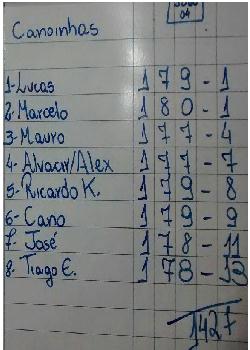 Canoinhas
1-Lucas 179-1
2-Marcelo 180-1
3-Mauro 177-4
4-Alvacir/Alex 177-7
5-Ricardo K. 179-8
6-Cano 179-9
7-José 178-11
8-Tiago E. 178-13
1427